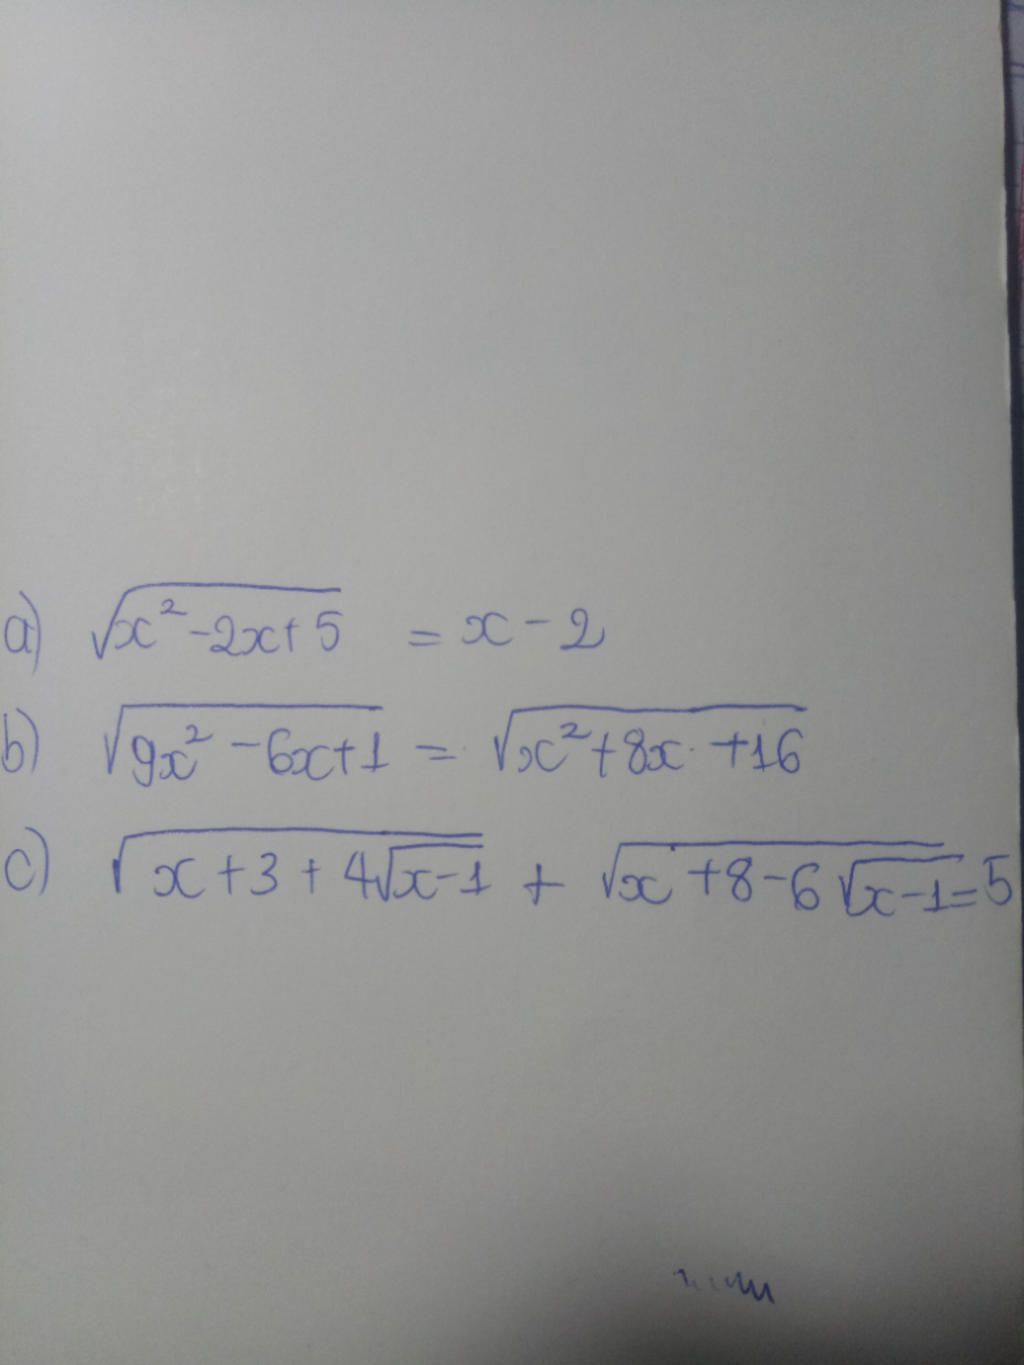 a) √(x² - 2x + 5) = x - 2
b) √(9x² - 6x + 1) = √(x² + 8x + 16)
c) √(x + 3 + 4√(x - 1)) + √(x + 8 - 6√(x - 1)) = 5